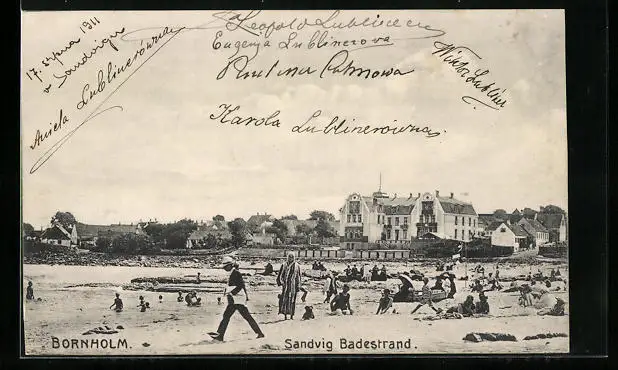 17. sierpnia 1911
w Sandvigu
Aniela Lublinerówna
Leopold Lubliner
Eugenja Lublinerova
Paulina
Wiktor Lubliner
Karola Lublinerówna
BORNHOLM.
Sandvig Badestrand.